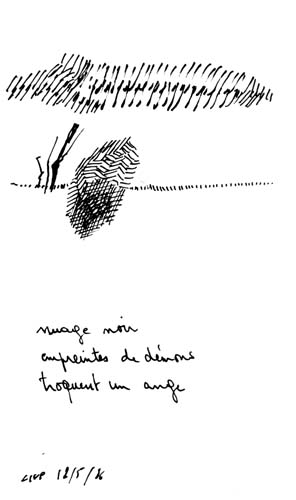 nuage noir
empreintes de démons
troquent un ange
12/5/